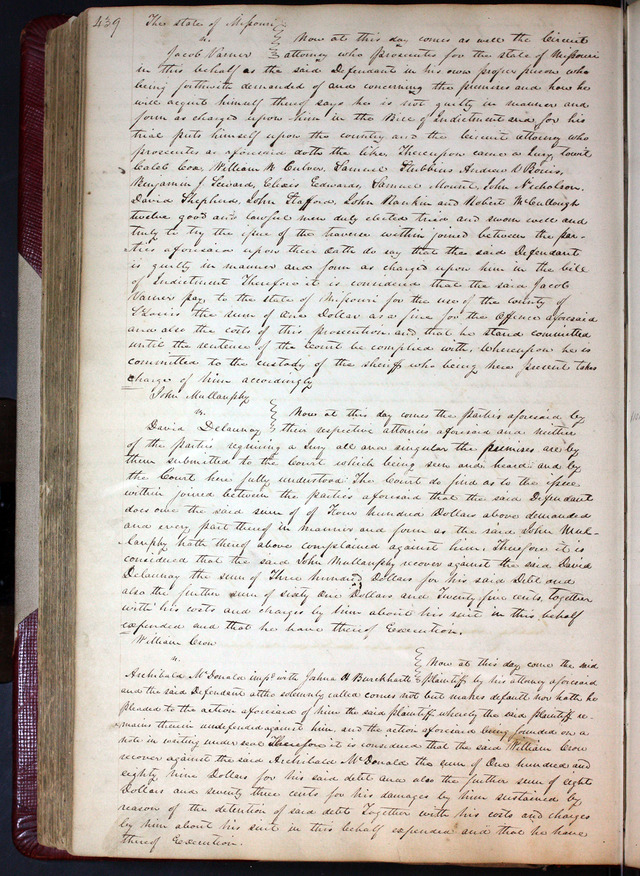 439
The state of Missouri
vs.
Jacob Varner
Now at this day comes as well the Circuit
attorney who prosecutes for the state of Missouri
in this behalf as the said Defendant in his own proper person who
being forthwith demanded of and concerning the premises and how he
will acquit himself thereof says he is not guilty in manner and
form as charged upon him in the Bill of Indictment and for his
trial puts himself upon the country and the Circuit attorney who
prosecutes as aforesaid doth the like. Thereupon came a Jury towit
Caleb Cox, William W Culver, Samuel Stubbins Andrew D
Benjamin J Seward, Edwards, Samuel Mount, John Nicholson
David Shepherd, John Stafford, John Rankin and Robert McCullough
twelve good and lawful men duly elected tried and sworn well and
truly to try the issue of the traverse within joined between the par-
ties aforesaid upon their Oath do say that the said Defendant
is guilty in manner and form as charged upon him in the bill
of Indictment Therefore it is considered that the said Jacob
Varner pay to the state of Missouri for the use of the county of
St Louis the sum of One Dollar as a fine for the Offence aforesaid
and also the costs of this prosecution and that he stand committed
until the sentence of the Court be complied with. Whereupon he is
committed to the custody of the sheriff who being here present takes
charge of him accordingly
John Mullanphy
vs.
David Delaunay
Now at this day comes the parties aforesaid by
their respective attornies aforesaid and neither
of the parties requiring a Jury all and singular the premises are by
them submitted to the Court which being seen and heard and by
the Court here fully understood The Court do find as to the issue
within joined between the parties aforesaid that the said Defendant
does owe the said sum of of Four hundred Dollars above demanded
and every part thereof in manner and form as the said John Mul-
lanphy hath thereof above complained against him. Therefore it is
considered that the said John Mullanphy recover against the said David
Delaunay the sum of Three hundred Dollars for his said Debt and
also the further sum of sixty One Dollars and Twenty five cents, together
with his costs and charges by him about his suit in this behalf
expended and that he have thereof Execution.
William Crow
vs.
Archibald McDonald impd with Joshua H Burckhartt
Now at this day come the said
plaintiff by his attorney aforesaid
and the said Defendant altho solemnly called comes not but makes default nor hath he
pleaded to the action aforesaid of him the said plaintiff whereby the said plaintiff re-
mains therein undefended against him, and the action aforesaid being founded on a
note in writing under seal Therefore it is considered that the said William Crow
recover against the said Archibald McDonald the sum of One hundred and
eighty nine Dollars for his said debt and also the further sum of eight
Dollars and seventy three cents for his damages by him sustained by
reason of the detention of said debt Together with his costs and charges
by him about his suit in this behalf expended and that he have
thereof Execution.